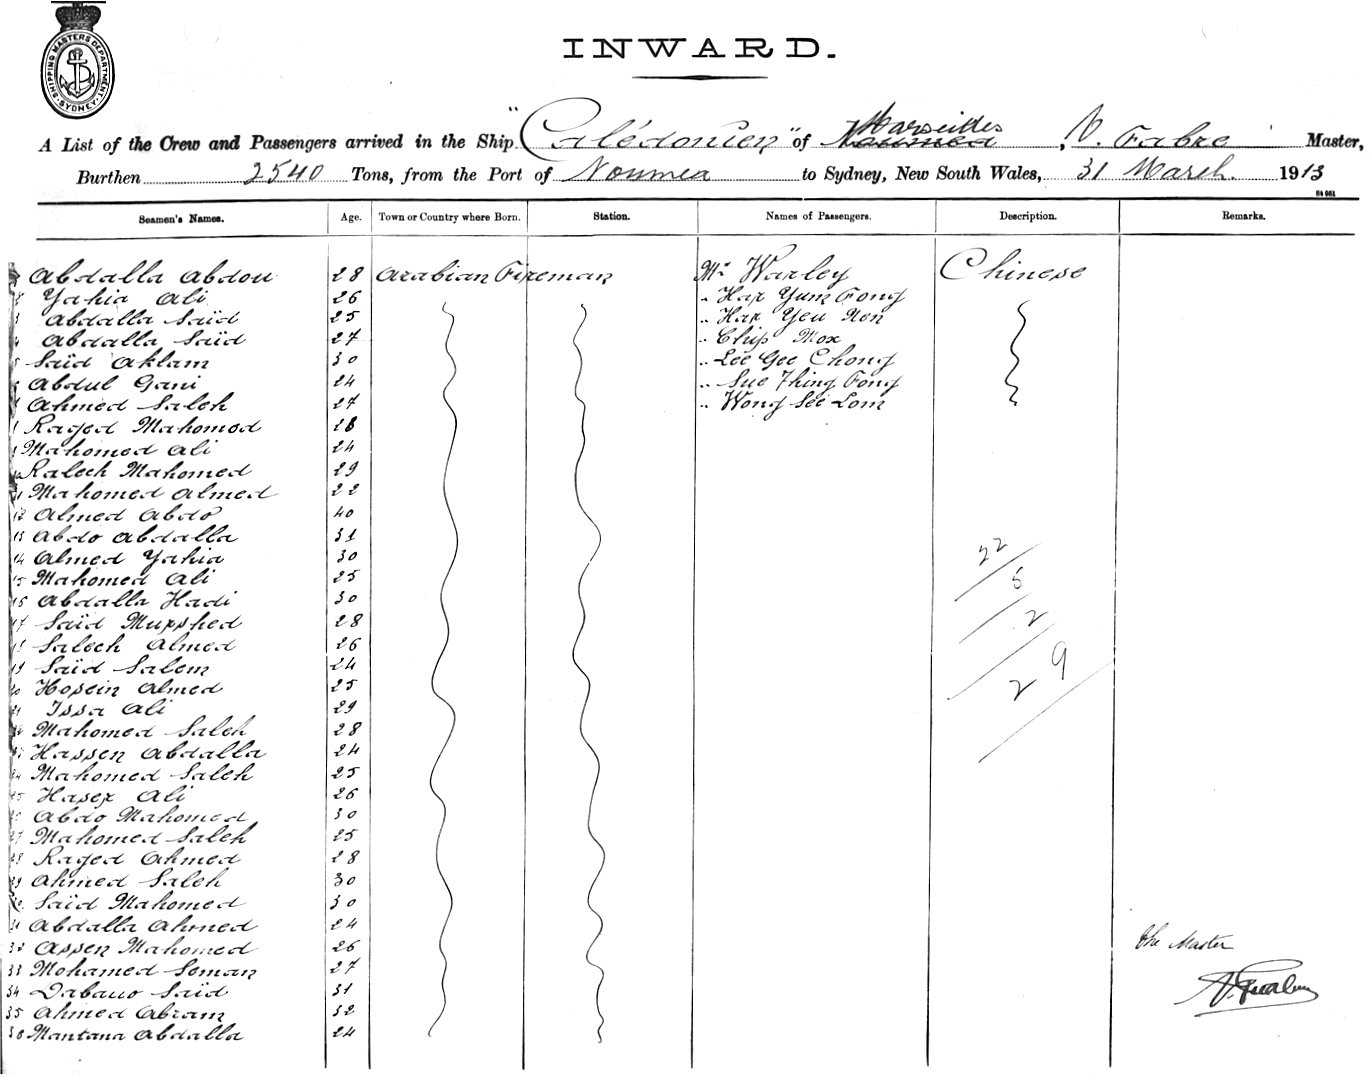 SHIPPING MASTERS DEPARTMENT SYDNEY
INWARD.
A List of the Crew and Passengers arrived in the Ship "Calédonien" of Noumea Marseilles, V. Fabre Master,
Burthen 2540 Tons, from the Port of Noumea to Sydney, New South Wales, 31 March. 1913
Seamen's Names. Age. Town or Country where Born. Station. Names of Passengers. Description. Remarks.
Abdalla Abdou 28 Arabian Fireman Mr Warley Chinese
Yahia Ali 26 " Har Yum Fong
3 Abdalla Saïd 25 " Har Yeu Non
4 Abdalla Saïd 27 " Chip Mox
5 Saïd Aklam 30 " Lee Gee Chong
6 Abdul Gani 24 " Sue Thing Fong
7 Ahmed Saleh 27 " Wong See Lom
8 Raged Mahomod 28
9 Mahomed Ali 24
10 Saleh Mahomed 29
11 Mahomed Almed 22
12 Almed Abdo 40
13 Abdo Abdalla 31
14 Almed Yahia 30
15 Mahomed Ali 25
16 Abdalla Hadi 30
17 Saïd Murshed 28
18 Saleh Almed 26
19 Saïd Salem 24
20 Hosein Almed 25
21 Issa Ali 29
22 Mahomed Saleh 28
23 Hassen Abdalla 24
24 Mahomed Saleh 25
25 Haser Ali 26
26 Abdo Mahomed 30
27 Mahomed Saleh 25
28 Raged Ahmed 28
29 Ahmed Saleh 30
30 Saïd Mahomed 30
31 Abdalla Ahmed 24
32 Assen Mahomed 26
33 Mohamed Soman 27
34 Dabano Saïd 31
35 Ahmed Abram 32
36 Mantana Abdalla 24
22
5
2
29
The Master